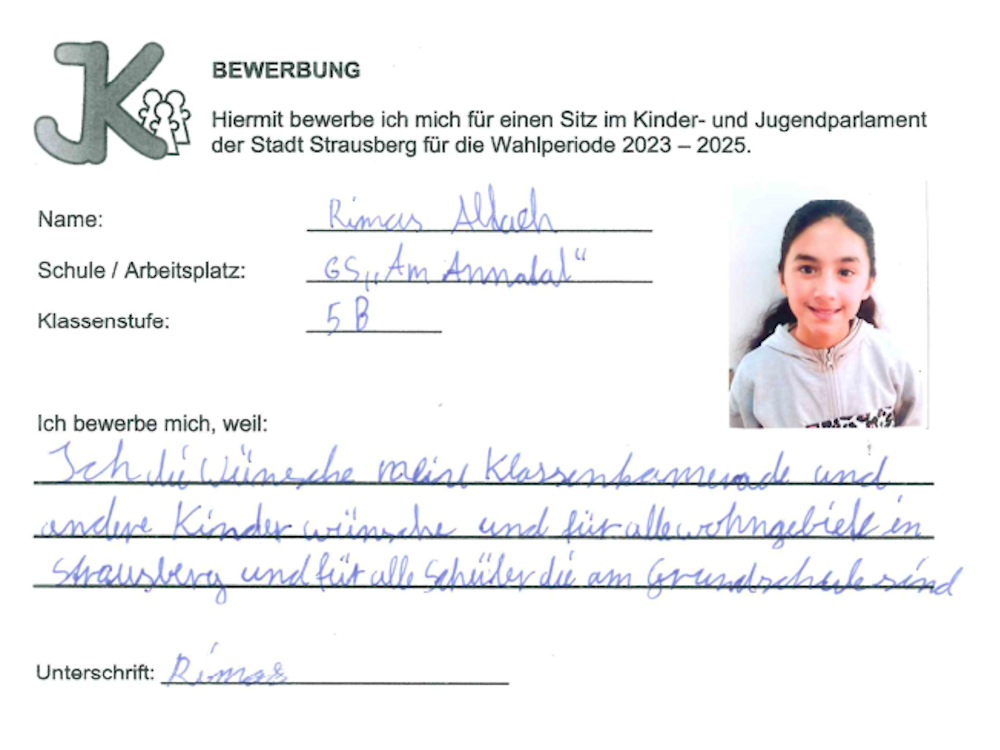 JK
BEWERBUNG
Hiermit bewerbe ich mich für einen Sitz im Kinder- und Jugendparlament
der Stadt Strausberg für die Wahlperiode 2023 – 2025.
Name: Rimas
Schule / Arbeitsplatz: GS „Am Annatal“
Klassenstufe: 5 B
Ich bewerbe mich, weil:
Ich die Wünsche meine Klassenkamerade und
andere Kinder wünsche und für alle wohngebiete in
Strausberg und für alle Schüler die am Grundschule sind
Unterschrift: Rimas